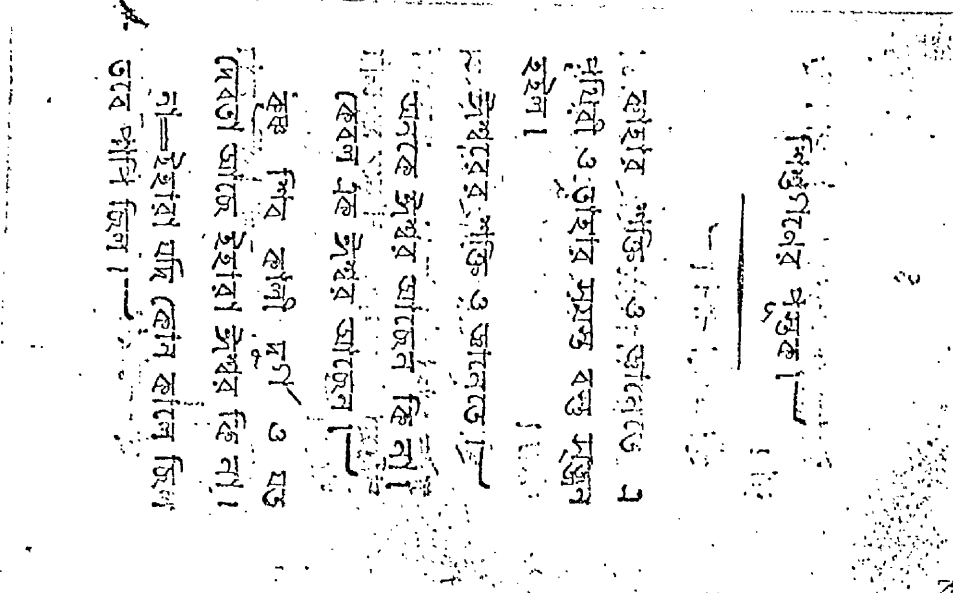 ২
শিশুগণের পুস্তক।
কাহার শক্তি ও জ্ঞানেতে এ
পৃথিবী ও তাহার সমস্ত বস্তু সৃজন
হইল।
ঈশ্বরের শক্তি ও জ্ঞানেতে।
অনেক ঈশ্বর আছেন কি না।
কেবল এক ঈশ্বর আছেন।
কৃষ্ণ শিব কালী দুর্গা ও যত
দেবতা আছে ইহারা ঈশ্বর কি না।
না—ইহারা যদি কোন কালে ছিল
তবে পাপি ছিল।